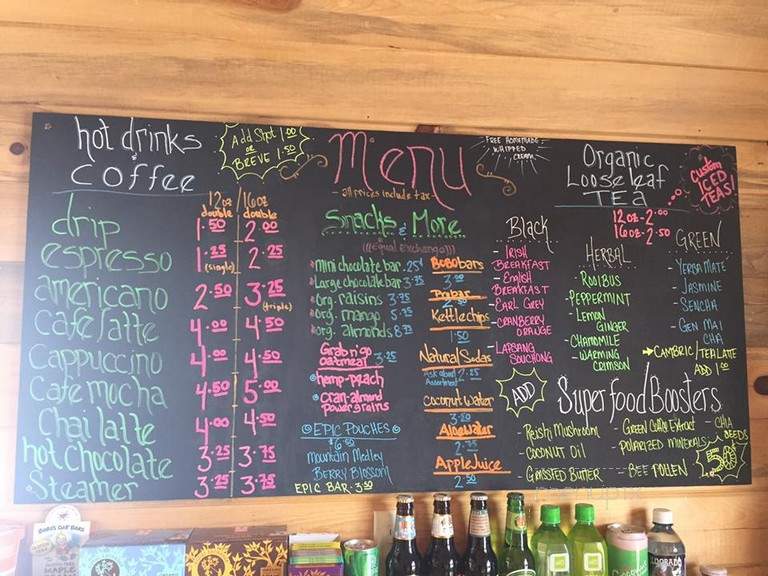 hot drinks
& coffee
Add Shot 1.00
or
BREVE 1.50
12oz
double
16oz
double
drip 1.50 2.00
espresso 1.25 (single) 2.25
americano 2.50 3.25 (triple)
cafe latte 4.00 4.50
cappuccino 4.00 4.50
cafe mocha 4.50 5.00
Chai latte 4.00 4.50
hot chocolate 3.25 3.75
Steamer 3.25 3.75
Menu
- all prices include tax -
FREE HOMEMADE
WHIPPED
CREAM
Snacks & More
(((Equal Exchange)))
mini chocolate bar .25
Large chocolate bar 3.75
org. raisins 3.75
org. mango 5.75
org. almonds 8.75
Grab n' go
oatmeal 3.25
hemp-peach
cran-almond
power grains
EPIC POUCHES
$6.50
mountain Medley
BERRY Blossom
EPIC BAR · 3.50
BoBo bars
3.00
Kettle chips
1.50
Natural Sodas
Ask about
Assortment 2.25
Coconut Water
3.50
Aloe Water
2.50
Apple Juice
2.50
Organic
Loose leaf
TEA
Custom
ICED
TEAS!
12oz - 2.00
16oz - 2.50
Black
- IRISH
BREAKFAST
- English
BREAKFAST
- EARL GREY
- CRANBERRY
ORANGE
- LAPSANG
SOUCHONG
HERBAL
- ROOIBUS
- PEPPERMINT
- LEMON
GINGER
- CHAMOMILE
- WARMING
CRIMSON
GREEN
- YERBA MATE
- JASMINE
- SENCHA
- GEN MAI
CHA
CAMBRIC/TEA LATTE
ADD 1.00
ADD
Superfood Boosters
- Reishi Mushroom
- COCONUT OIL
- GRASSFED BUTTER
- GREEN COFFEE EXTRACT
- POLARIZED MINERALS
- BEE POLLEN
- CHIA
SEEDS
.50
BOBO'S OAT BARS
MAPLE